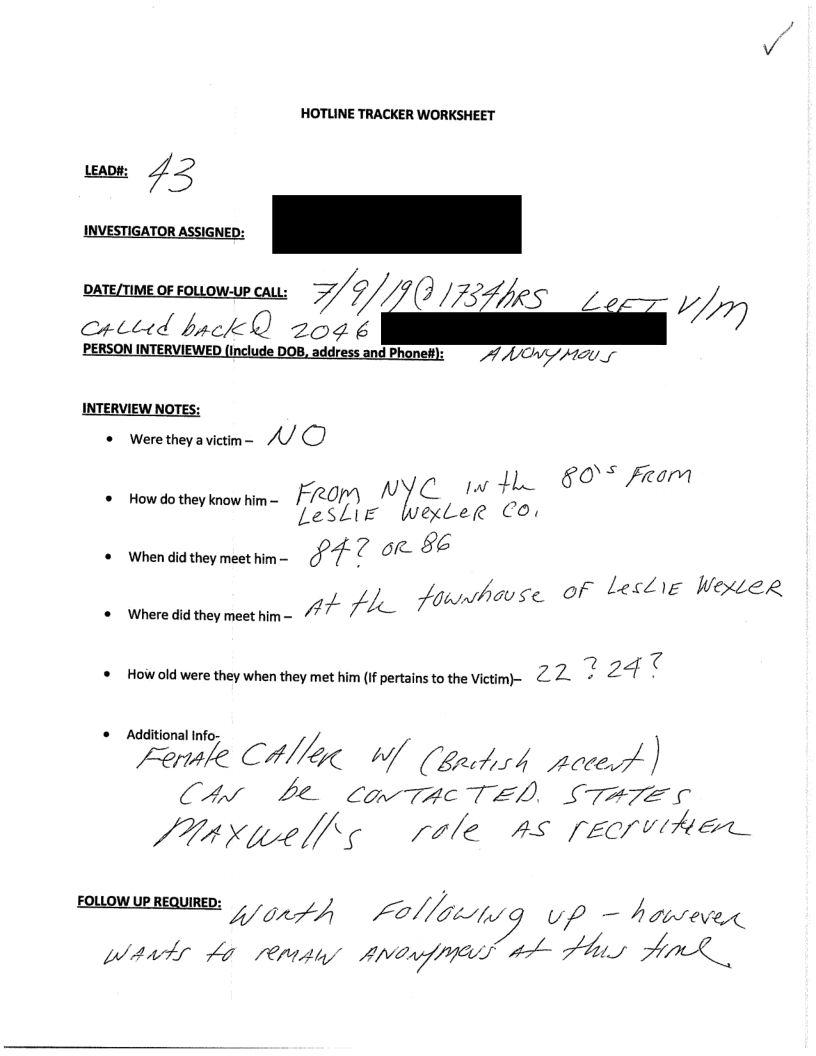 HOTLINE TRACKER WORKSHEET
LEAD#: 43
INVESTIGATOR ASSIGNED:
DATE/TIME OF FOLLOW-UP CALL: 7/9/19@1734hRS LEFT V/M
CALLED bACK@ 2046
PERSON INTERVIEWED (Include DOB, address and Phone#): ANONYMOUS
INTERVIEW NOTES:
• Were they a victim – NO
• How do they know him – FROM NYC IN the 80's FROM
LESLIE WEXLER CO.
• When did they meet him – 84? OR 86
• Where did they meet him – At the townhouse OF LesLIE WEXLER
• How old were they when they met him (If pertains to the Victim)– 22? 24?
• Additional Info-
FEMALE CALLER W/ (BRITISH ACCENT)
CAN be CONTACTED. STATES
MAXWELL'S role AS
FOLLOW UP REQUIRED: WORTH FOLLOWING UP – however
WANTS to REMAIN ANONYMOUS At this time.